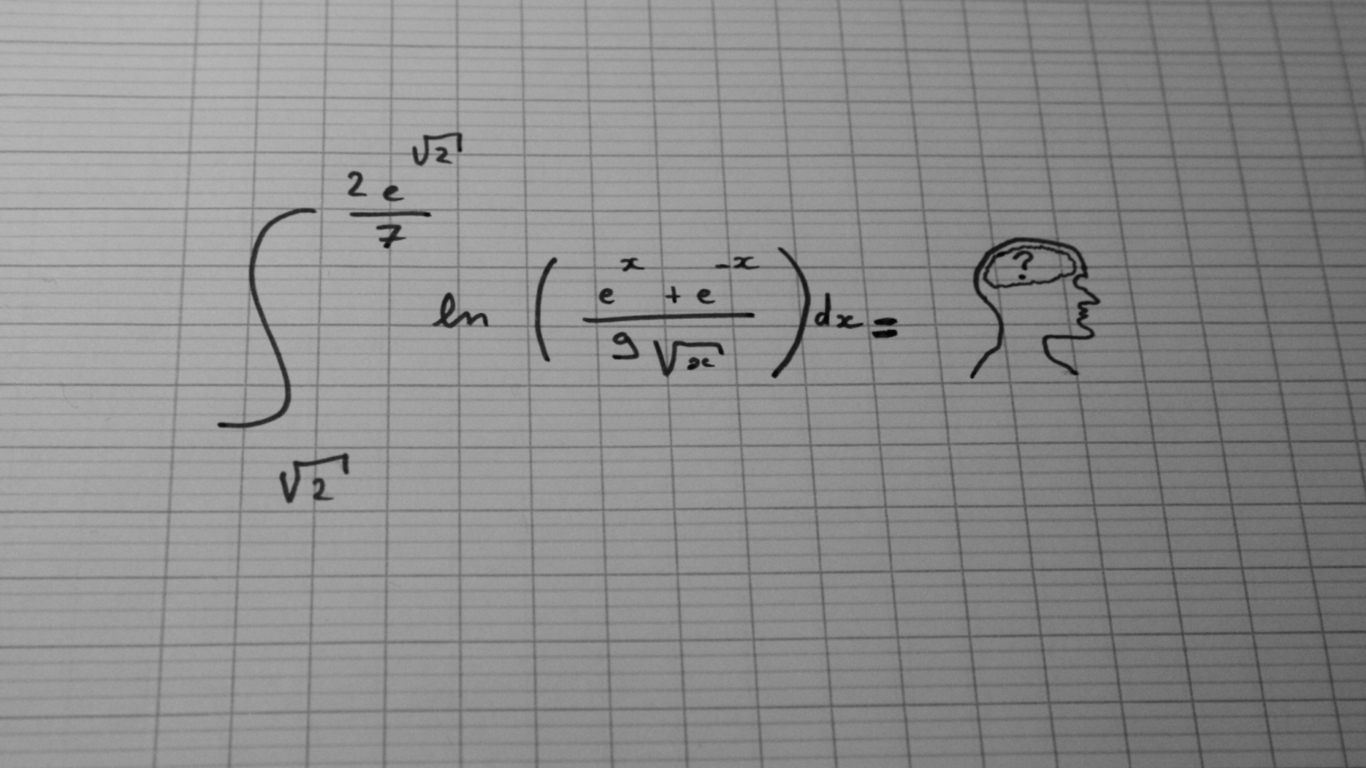 ∫_{√2}^{\frac{2e^{√2}}{7}} ln(\frac{e^{x} + e^{-x}}{9√x})dx = ?